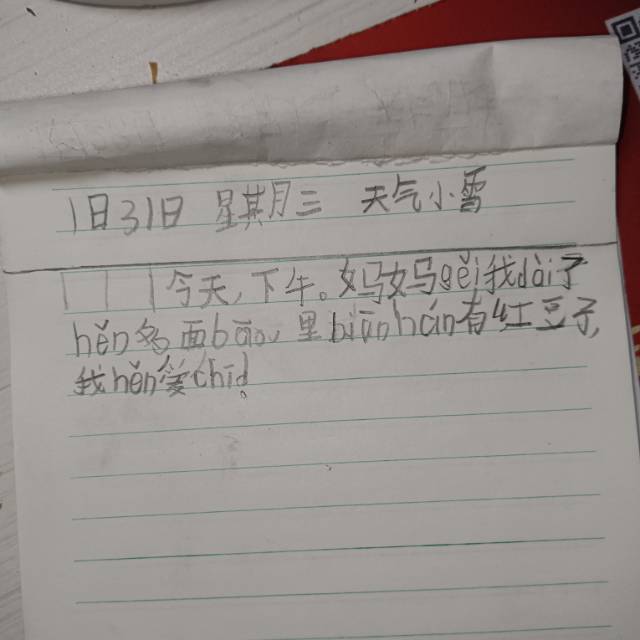 1日31日 星其月三 天气小雪
今天,下午。妈妈gěi我dài了
hěn多面bāo,里biānhán有红豆子,
我hěn爱chī。